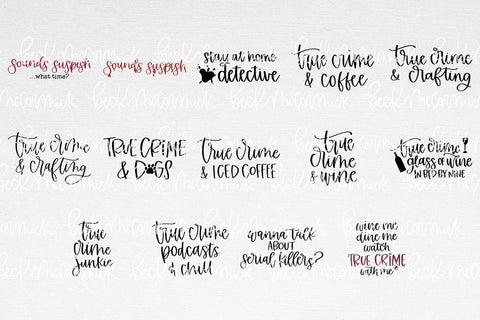 sounds suspish
...what time?
sounds suspish
stay at home
detective
true crime
& coffee
true crime
& crafting
true crime
& crafting
TRUE CRIME
& DOGS
true crime
& ICED COFFEE
true
crime
& wine
true crime
glass of wine
IN BED BY NINE
true
crime
junkie
true crime
podcasts
& chill
wanna talk
ABOUT
serial killers?
wine me
dine me
watch
TRUE CRIME
with me
beck mccormick